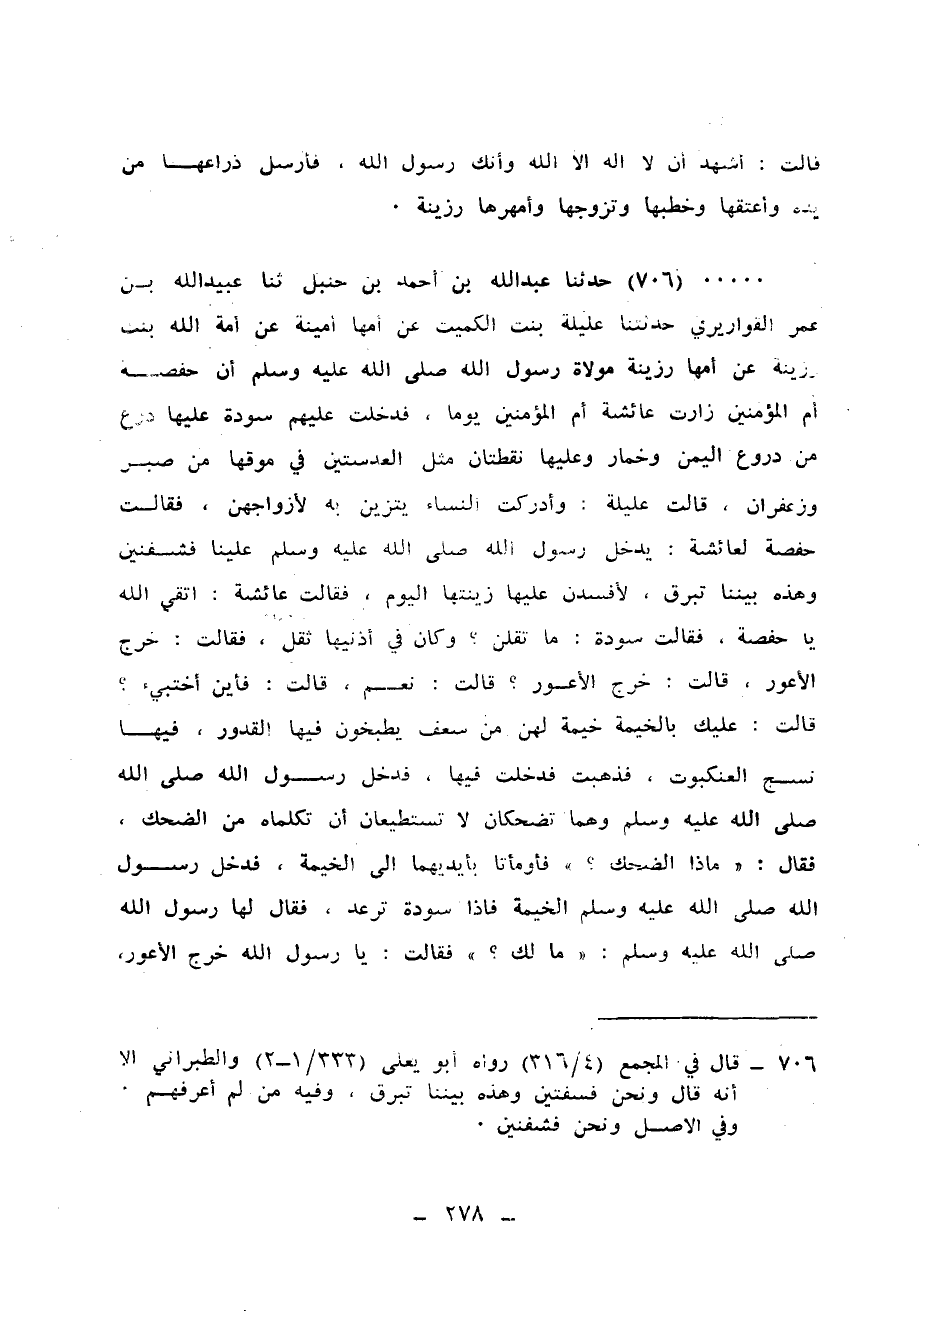 قالت : أشهد أن لا اله الا الله وأنك رسول الله ، فأرسل ذراعهـــا من
يده وأعتقها وخطبها وتزوجها وأمهرها رزينة .
٠٠٠٠٠ (٧٠٦) حدثنا عبدالله بن أحمد بن حنبل ثنا عبيدالله بـن
عمر القواريري حدثتنا عليلة بنت الكميت عن أمها أمينة عن أمة الله بنت
رزينة عن أمها رزينة مولاة رسول الله صلى الله عليه وسلم أن حفصـــة
أم المؤمنين زارت عائشة أم المؤمنين يوما ، فدخلت عليهم سودة عليها درع
من دروع اليمن وخمار وعليها نقطتان مثل العدستين في موقها من صبـر
وزعفران ، قالت عليلة : وأدركت النساء يتزين به لأزواجهن ، فقالـت
حفصة لعائشة : يدخل رسول الله صلى الله عليه وسلم علينا فشـفنين
وهذه بيننا تبرق ، لأفسدن عليها زينتها اليوم ، فقالت عائشة : اتقي الله
يا حفصة ، فقالت سودة : ما تقلن ؟ وكان في أذنيها ثقل ، فقالت : خرج
الأعور ، قالت : خرج الأعــور ؟ قالت : نعـــم ، قالت : فأين أختبيء ؟
قالت : عليك بالخيمة خيمة لهن من سعف يطبخون فيها القدور ، فيهـــا
نســـج العنكبوت ، فذهبت فدخلت فيها ، فدخل رســـول الله صلى الله
صلى الله عليه وسلم وهما تضحكان لا تستطيعان أن تكلماه من الضحك ،
فقال : « ماذا الضحك ؟ » فأومأتا بأيديهما الى الخيمة ، فدخل رســـول
الله صلى الله عليه وسلم الخيمة فاذا سودة ترعد ، فقال لها رسول الله
صلى الله عليه وسلم : « ما لك ؟ » فقالت : يا رسول الله خرج الأعور،
٧٠٦ ـ قال في المجمع (٣١٦/٤) رواه أبو يعلى (١/٣٣٣ـ٢) والطبراني الا
أنه قال ونحن فسفتين وهذه بيننا تبرق ، وفيه من لم أعرفهـــم .
وفي الاصــل ونحن فشفنين .
ـ ٢٧٨ ـ